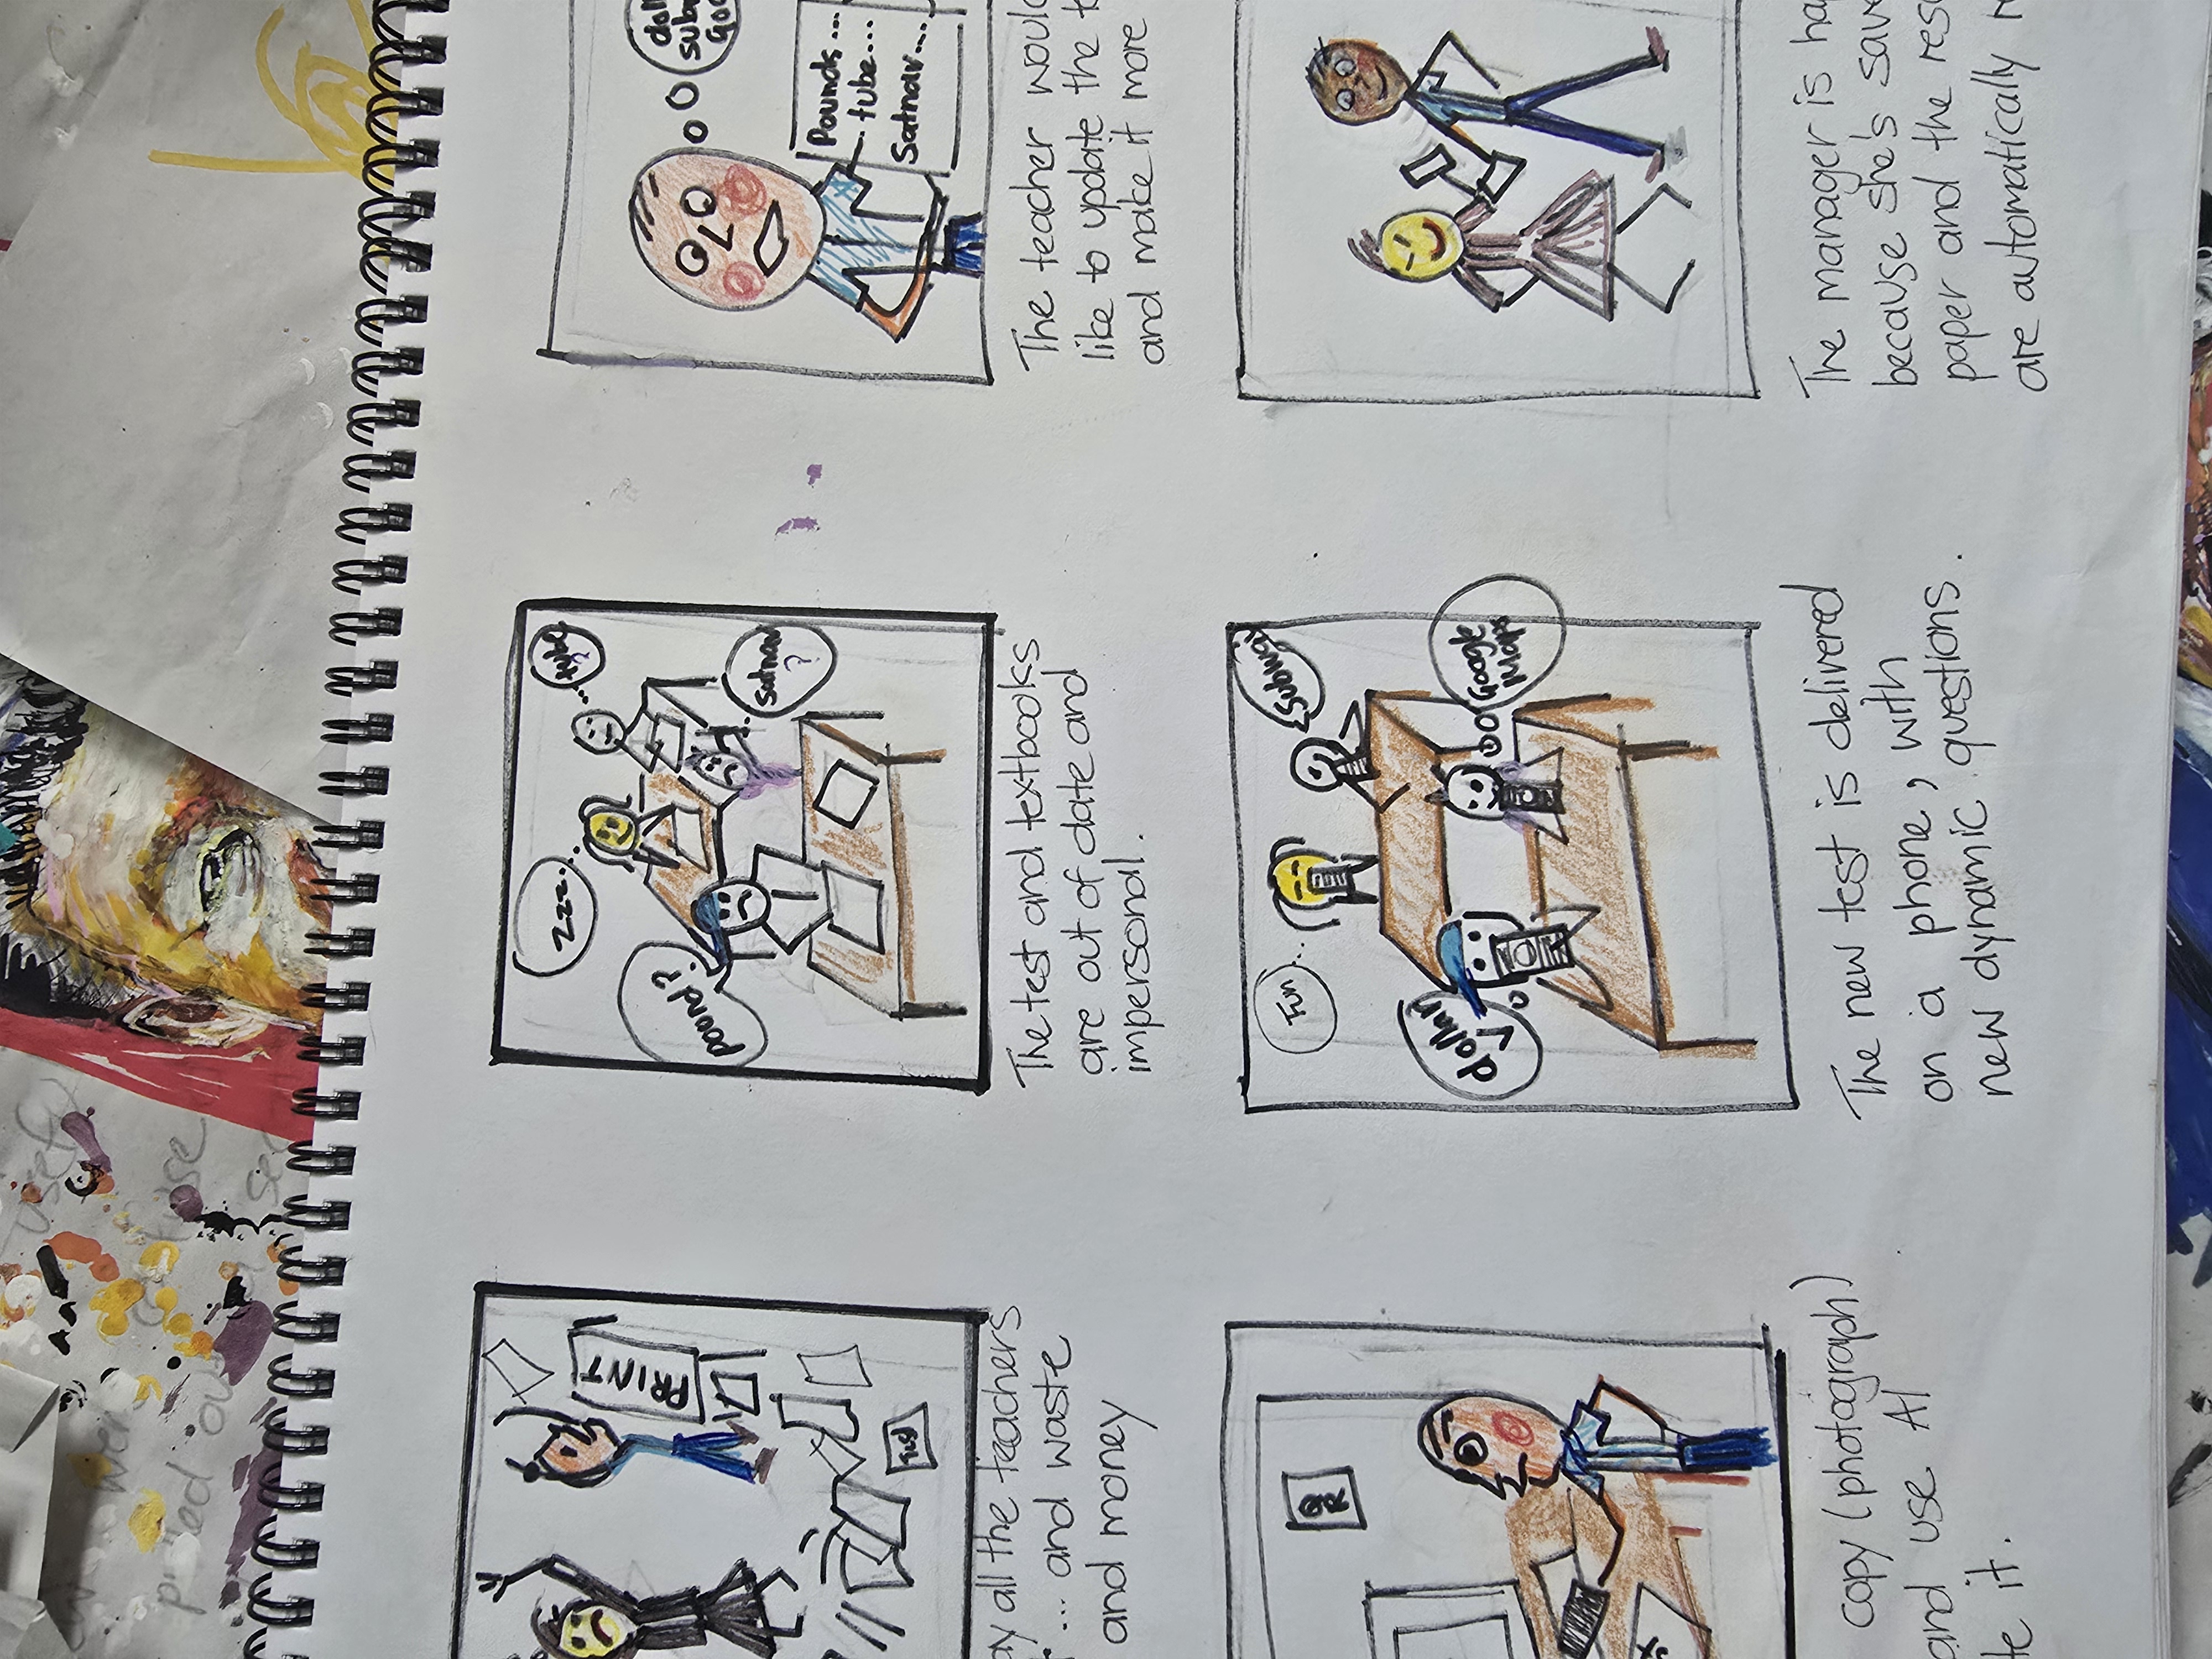 PRINT
Test
ay all the teachers
... and waste
and money
Zzz...
tube?
pound?
Satnav
?
The test and textbooks
are out of date and
impersonal.
Pounds...
tube...
Satnav...
The teacher would
like to update the
and make it more
QR
copy (photograph)
and use AI
it.
Fun
Subway
dollar
Google
Maps
The new test is delivered
on a phone, with
new dynamic questions.
The manager is
because she's
paper and the
are automatically